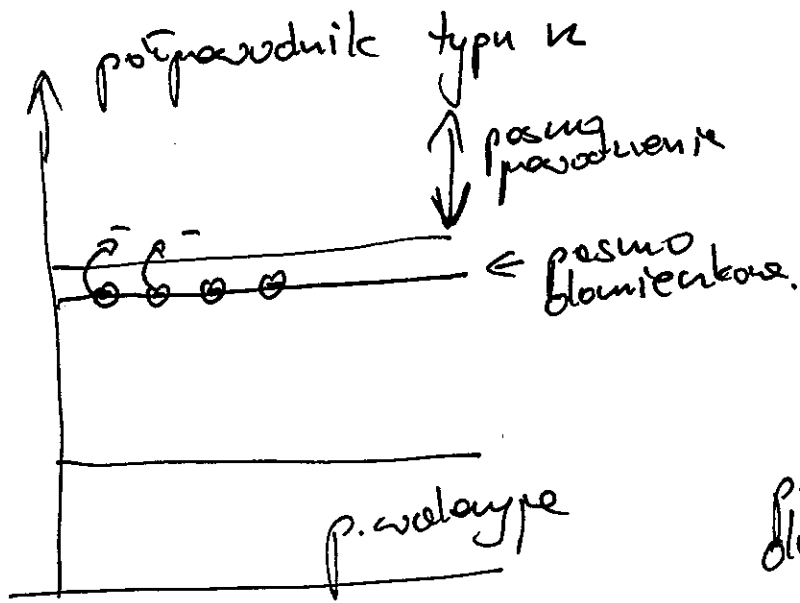 półprzewodnik typu n
pasmo
przewodzenia
← pasmo
domieszkowe.
p. walencyjne